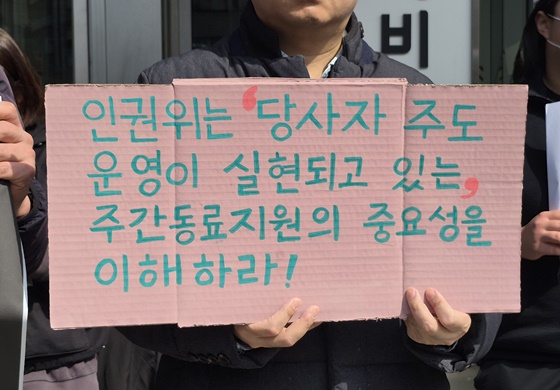 비
인권위는 ‘당사자 주도
운영이 실현되고 있는,
주간동료지원의 중요성을
이해하라!